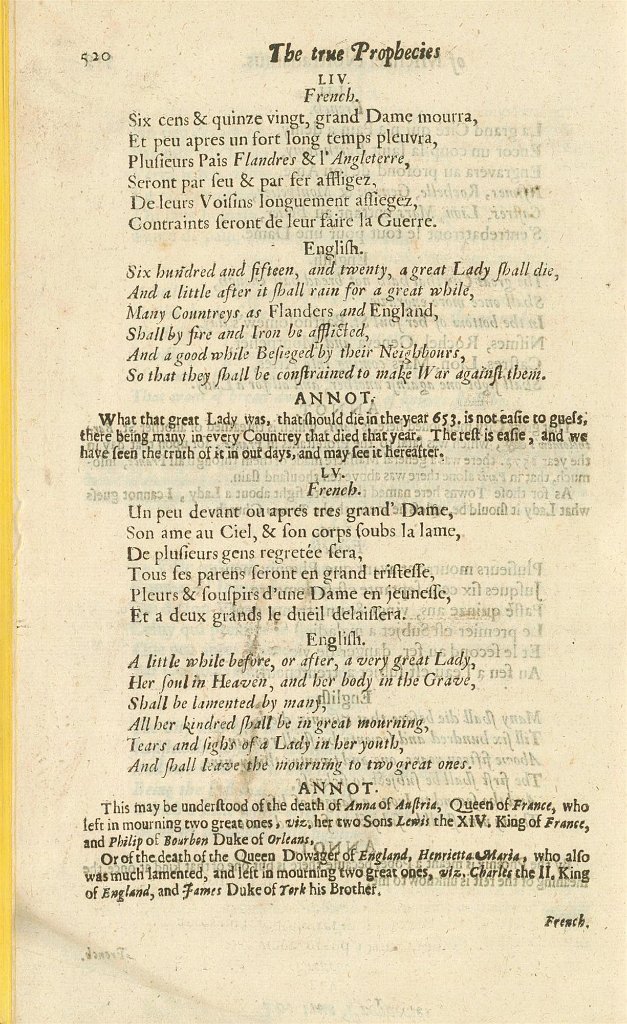 520 The true Prophecies
LIV.
French.
Six cens & quinze vingt, grand Dame mourra,
Et peu apres un fort long temps pleuvra,
Pluſieurs Pais Flandres & l'Angleterre,
Seront par feu & par fer affligez,
De leurs Voiſins longuement aſſiegez,
Contraints feront de leur faire la Guerre.
Engliſh.
Six hundred and fifteen, and twenty, a great Lady ſhall die,
And a little after it ſhall rain for a great while,
Many Countreys as Flanders and England,
Shall by fire and Iron be afflicted,
And a good while Beſieged by their Neighbours,
So that they ſhall be conſtrained to make War againſt them.
ANNOT.
What that great Lady was, that ſhould die in the year 653. is not eaſie to gueſs,
there being many in every Countrey that died that year. The reſt is eaſie, and we
have ſeen the truth of it in our days, and may ſee it hereafter.
LV.
French.
Un peu devant ou aprés tres grand' Dame,
Son ame au Ciel, & ſon corps ſoubs la lame,
De pluſieurs gens regretée ſera,
Tous ſes parens ſeront en grand triſteſſe,
Pleurs & ſouſpirs d'une Dame en jeuneſſe,
Et a deux grands le dueil delaiſſera.
Engliſh.
A little while before, or after, a very great Lady,
Her ſoul in Heaven, and her body in the Grave,
Shall be lamented by many,
All her kindred ſhall be in great mourning,
Tears and ſighs of a Lady in her youth,
And ſhall leave the mourning to two great ones.
ANNOT.
This may be underſtood of the death of Anna of Auſtria, Queen of France, who
left in mourning two great ones, viz. her two Sons Lewis the XIV. King of France,
and Philip of Bourbon Duke of Orleans.
Or of the death of the Queen Dowager of England, Henrietta Maria, who alſo
was much lamented, and left in mourning two great ones, viz. Charles the II. King
of England, and James Duke of York his Brother.
French.